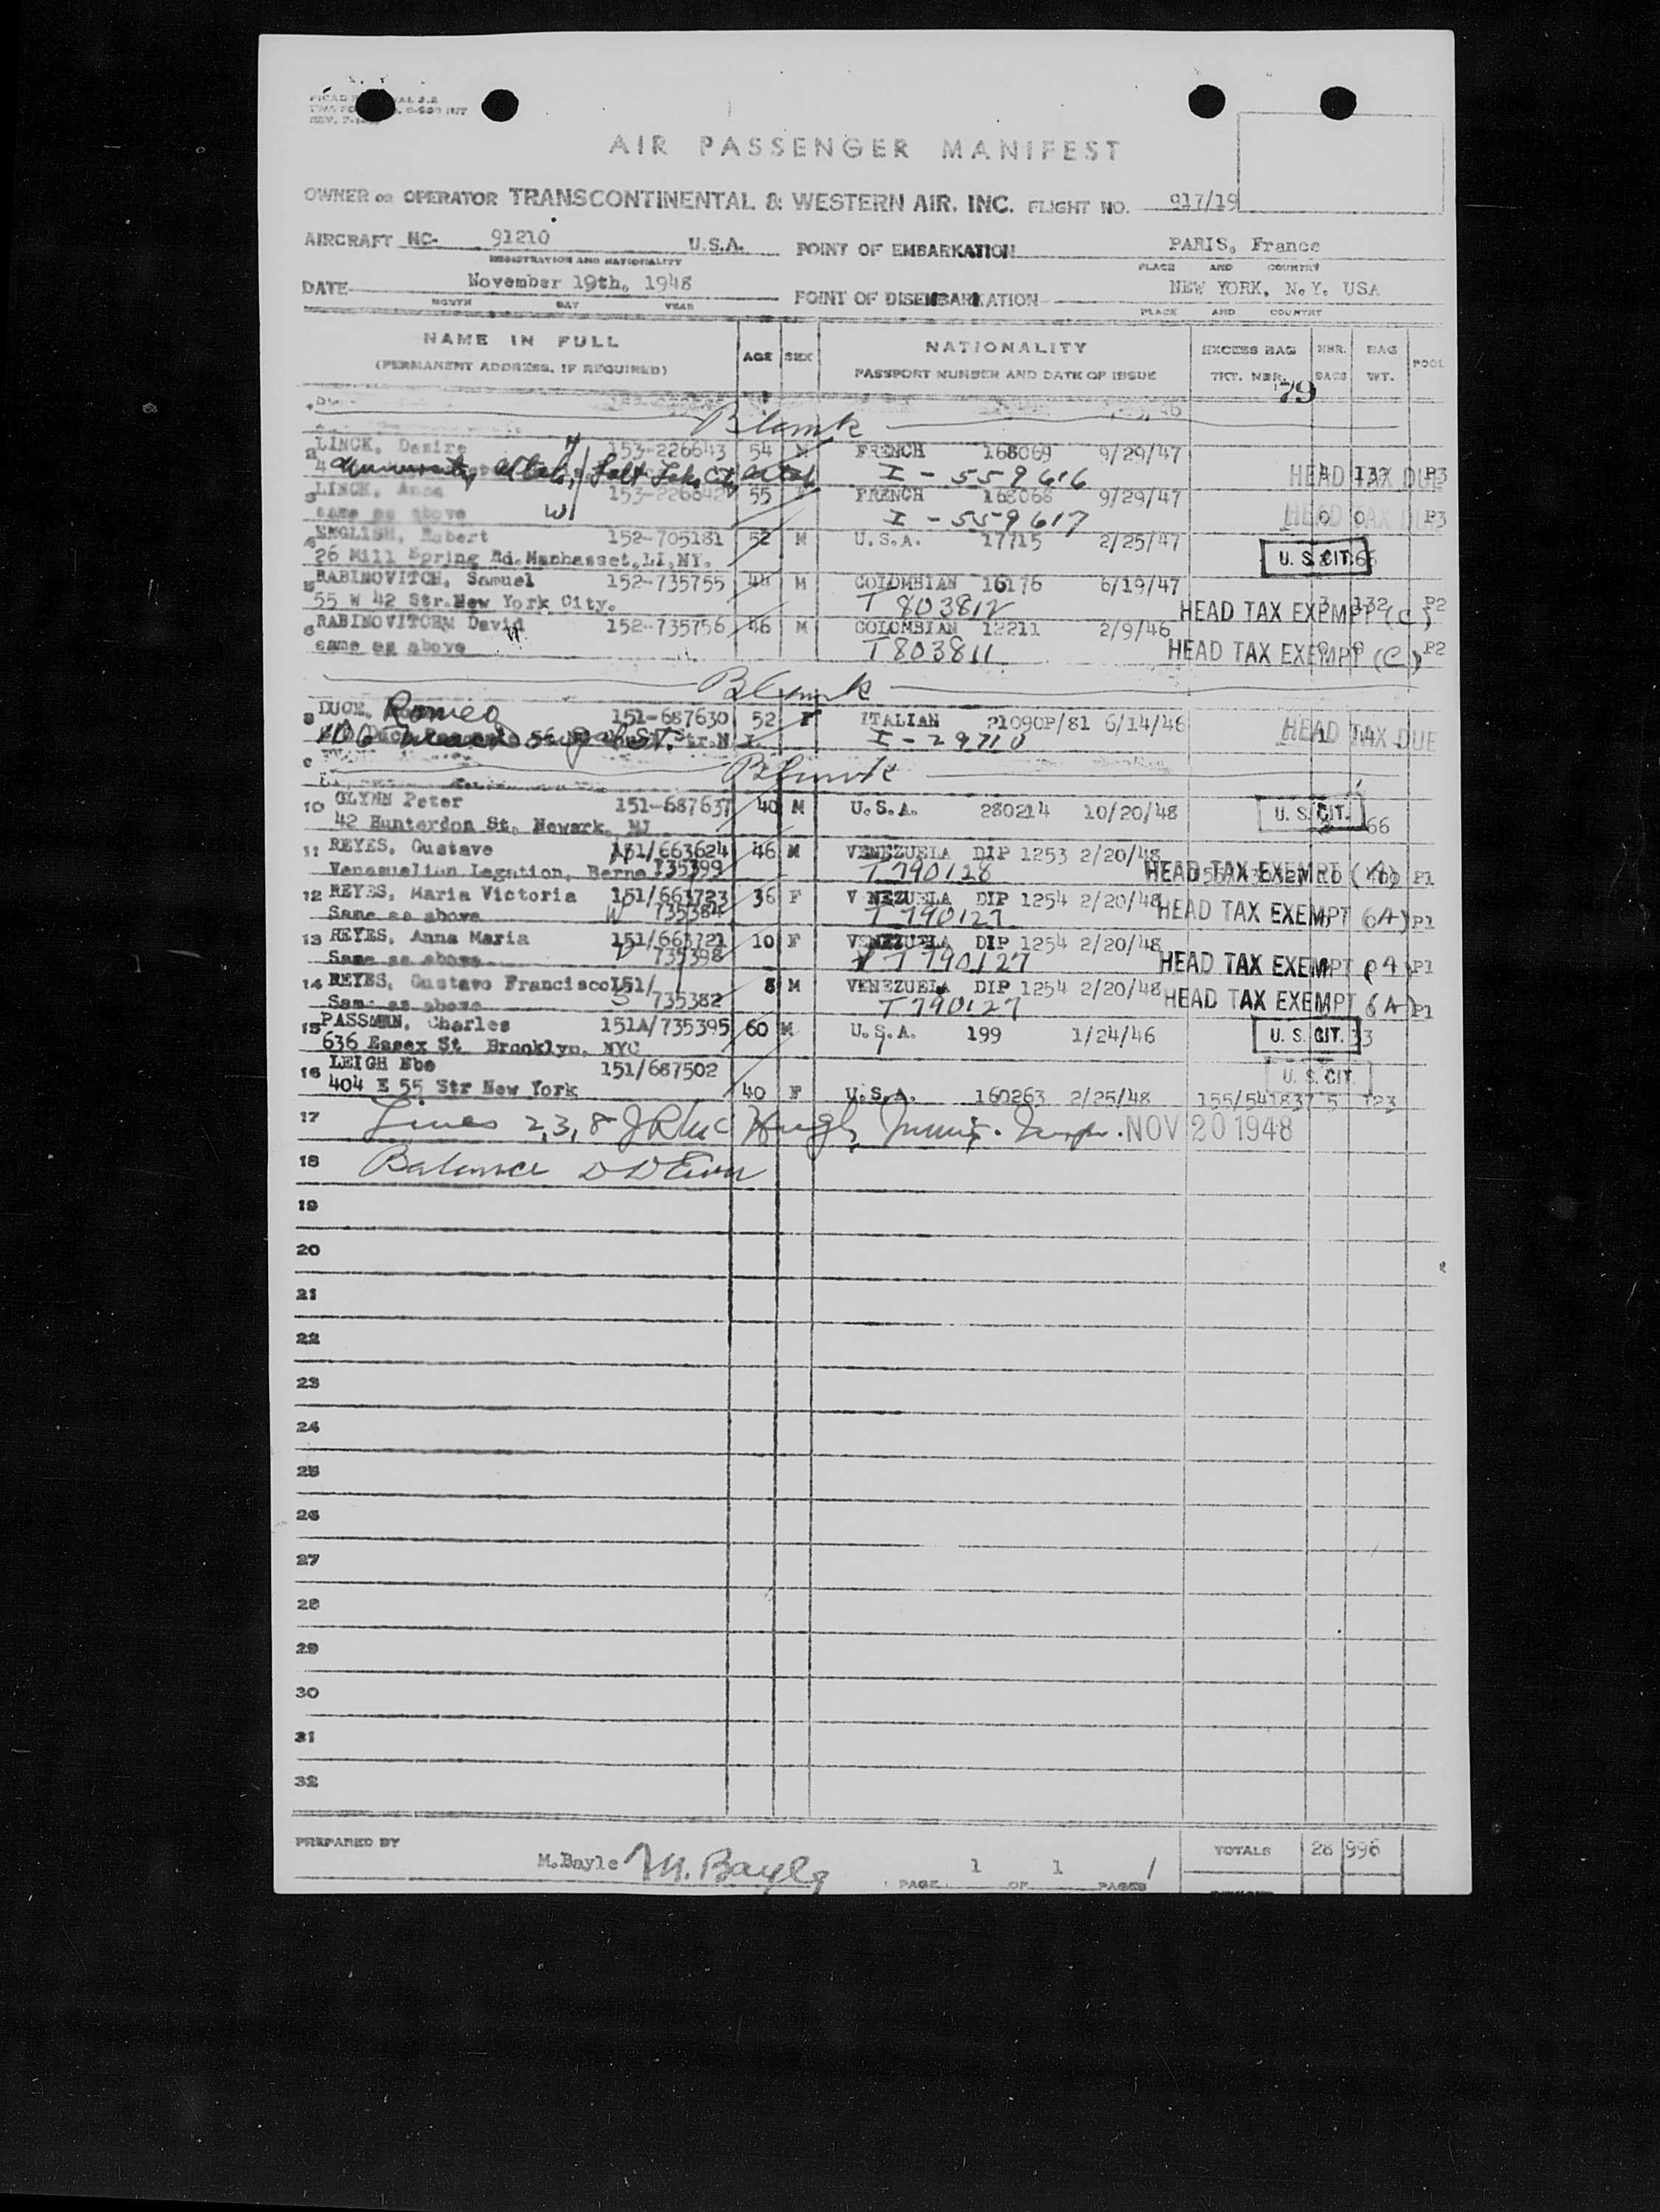 AIR PASSENGER MANIFEST
OWNER OR OPERATOR TRANSCONTINENTAL & WESTERN AIR, INC. FLIGHT NO. 917/19
AIRCRAFT NC- 91210 U.S.A. POINT OF EMBARKATION PARIS, France
REGISTRATION AND NATIONALITY PLACE AND COUNTRY
DATE November 19th, 1948 POINT OF DISEMBARKATION NEW YORK, N.Y. USA
MONTH DAY YEAR PLACE AND COUNTRY
NAME IN FULL AGE SEX NATIONALITY EXCESS BAG NBR. BAG POOL
(PERMANENT ADDRESS, IF REQUIRED) PASSPORT NUMBER AND DATE OF ISSUE TKT. NBR. BAGS WT.
79
Blank
LINCK, Desire 153-226643 54 M FRENCH 168069 9/29/47
Utah, Salt Lake City, Utah I-559616 HEAD TAX DUE P3
3 LINCK, Anna 153-226642 55 FRENCH 168068 9/29/47
same as above W I-559617 HEAD TAX DUE 0 0 P3
ENGLISH, Robert 152-705181 52 M U.S.A. 17715 2/25/47
26 Mill Spring Rd. Manhasset, LI, NY. U. S. CIT.
5 RABINOVITCH, Samuel 152-735755 44 M COLOMBIAN 16176 6/19/47
55 W 42 Str. New York City. T 803812 HEAD TAX EXEMPT (C) 3 132 P2
6 RABINOVITCHM David 152-735756 46 M COLOMBIAN 12211 2/9/46
same as above T803811 HEAD TAX EXEMPT (C) P2
Blank
8 DUCE, Romeo 151-687630 52 F ITALIAN 21090P/81 6/14/46
I-29710 HEAD TAX DUE
Blank
10 GLYNN Peter 151-687637 40 M U.S.A. 280214 10/20/48 U. S. CIT.
42 Hunterdon St. Newark, NJ 66
11 REYES, Gustavo 151/663624 46 M VENEZUELA DIP 1253 2/20/48
Venezuelian Legation, Berne 735399 T790128 HEAD TAX EXEMPT (A) P1
12 REYES, Maria Victoria 151/663723 36 F V NEZUELA DIP 1254 2/20/48
Same as above W 735384 T790127 HEAD TAX EXEMPT (A) P1
13 REYES, Anna Maria 151/663721 10 F VENEZUELA DIP 1254 2/20/48
Same as above D 735398 T790127 HEAD TAX EXEMPT (A) P1
14 REYES, Gustavo Francisco 151/ 8 M VENEZUELA DIP 1254 2/20/48
Same as above S 735382 T790127 HEAD TAX EXEMPT (A) P1
15 PASSMAN, Charles 151A/735395 60 M U.S.A. 199 1/24/46 U. S. CIT. 33
636 Essex St Brooklyn, NYC
16 LEIGH Ebe 151/687502 U. S. CIT.
404 E 55 Str New York 40 F U.S.A. 160263 2/25/48 155/541837 5 123
17 Lines 2,3,8 J R McHugh, Immig. Insp. NOV 20 1948
18 Balance
19
20
21
22
23
24
25
26
27
28
29
30
31
32
PREPARED BY M.Bayle M. Bayle 1 1 / TOTALS 28 996
PAGE OF PAGES